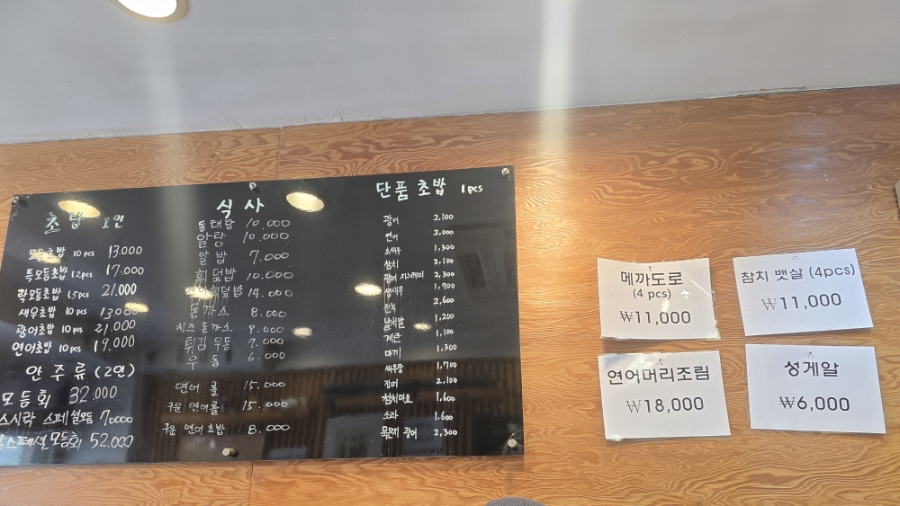 초밥 1인
모듬초밥 10pcs 13.000
특모듬초밥 12pcs 17.000
락모듬초밥 15pcs 21.000
새우초밥 10pcs
광어초밥 10pcs 21.000
연어초밥 10pcs 19.000
안주류 (2인)
모듬회 32.000
스페셜모듬
스페셜모듬회 52.000
식사
동태탕 10.000
알탕 10.000
알밥 7.000
회덮밥 10.000
회덮밥 14.000
돈까스 8.000
치즈돈까스 9.000
튀김우동 7.000
우동 6.000
연어롤 15.000
구운 연어롤 15.000
구운 연어초밥 8.000
단품초밥 1pcs
광어 2,100
연어 2,000
1,300
참치 2,100
광어 지느러미 2,300
1,700
2,600
날치알 1,200
계란 1,100
1,300
새우장 1,700
장어 2,100
참치마요 1,600
소라 1,600
광어 2,300
메까도로
(4 pcs)
₩11,000
참치 뱃살 (4pcs)
₩11,000
연어머리조림
₩18,000
성게알
₩6,000